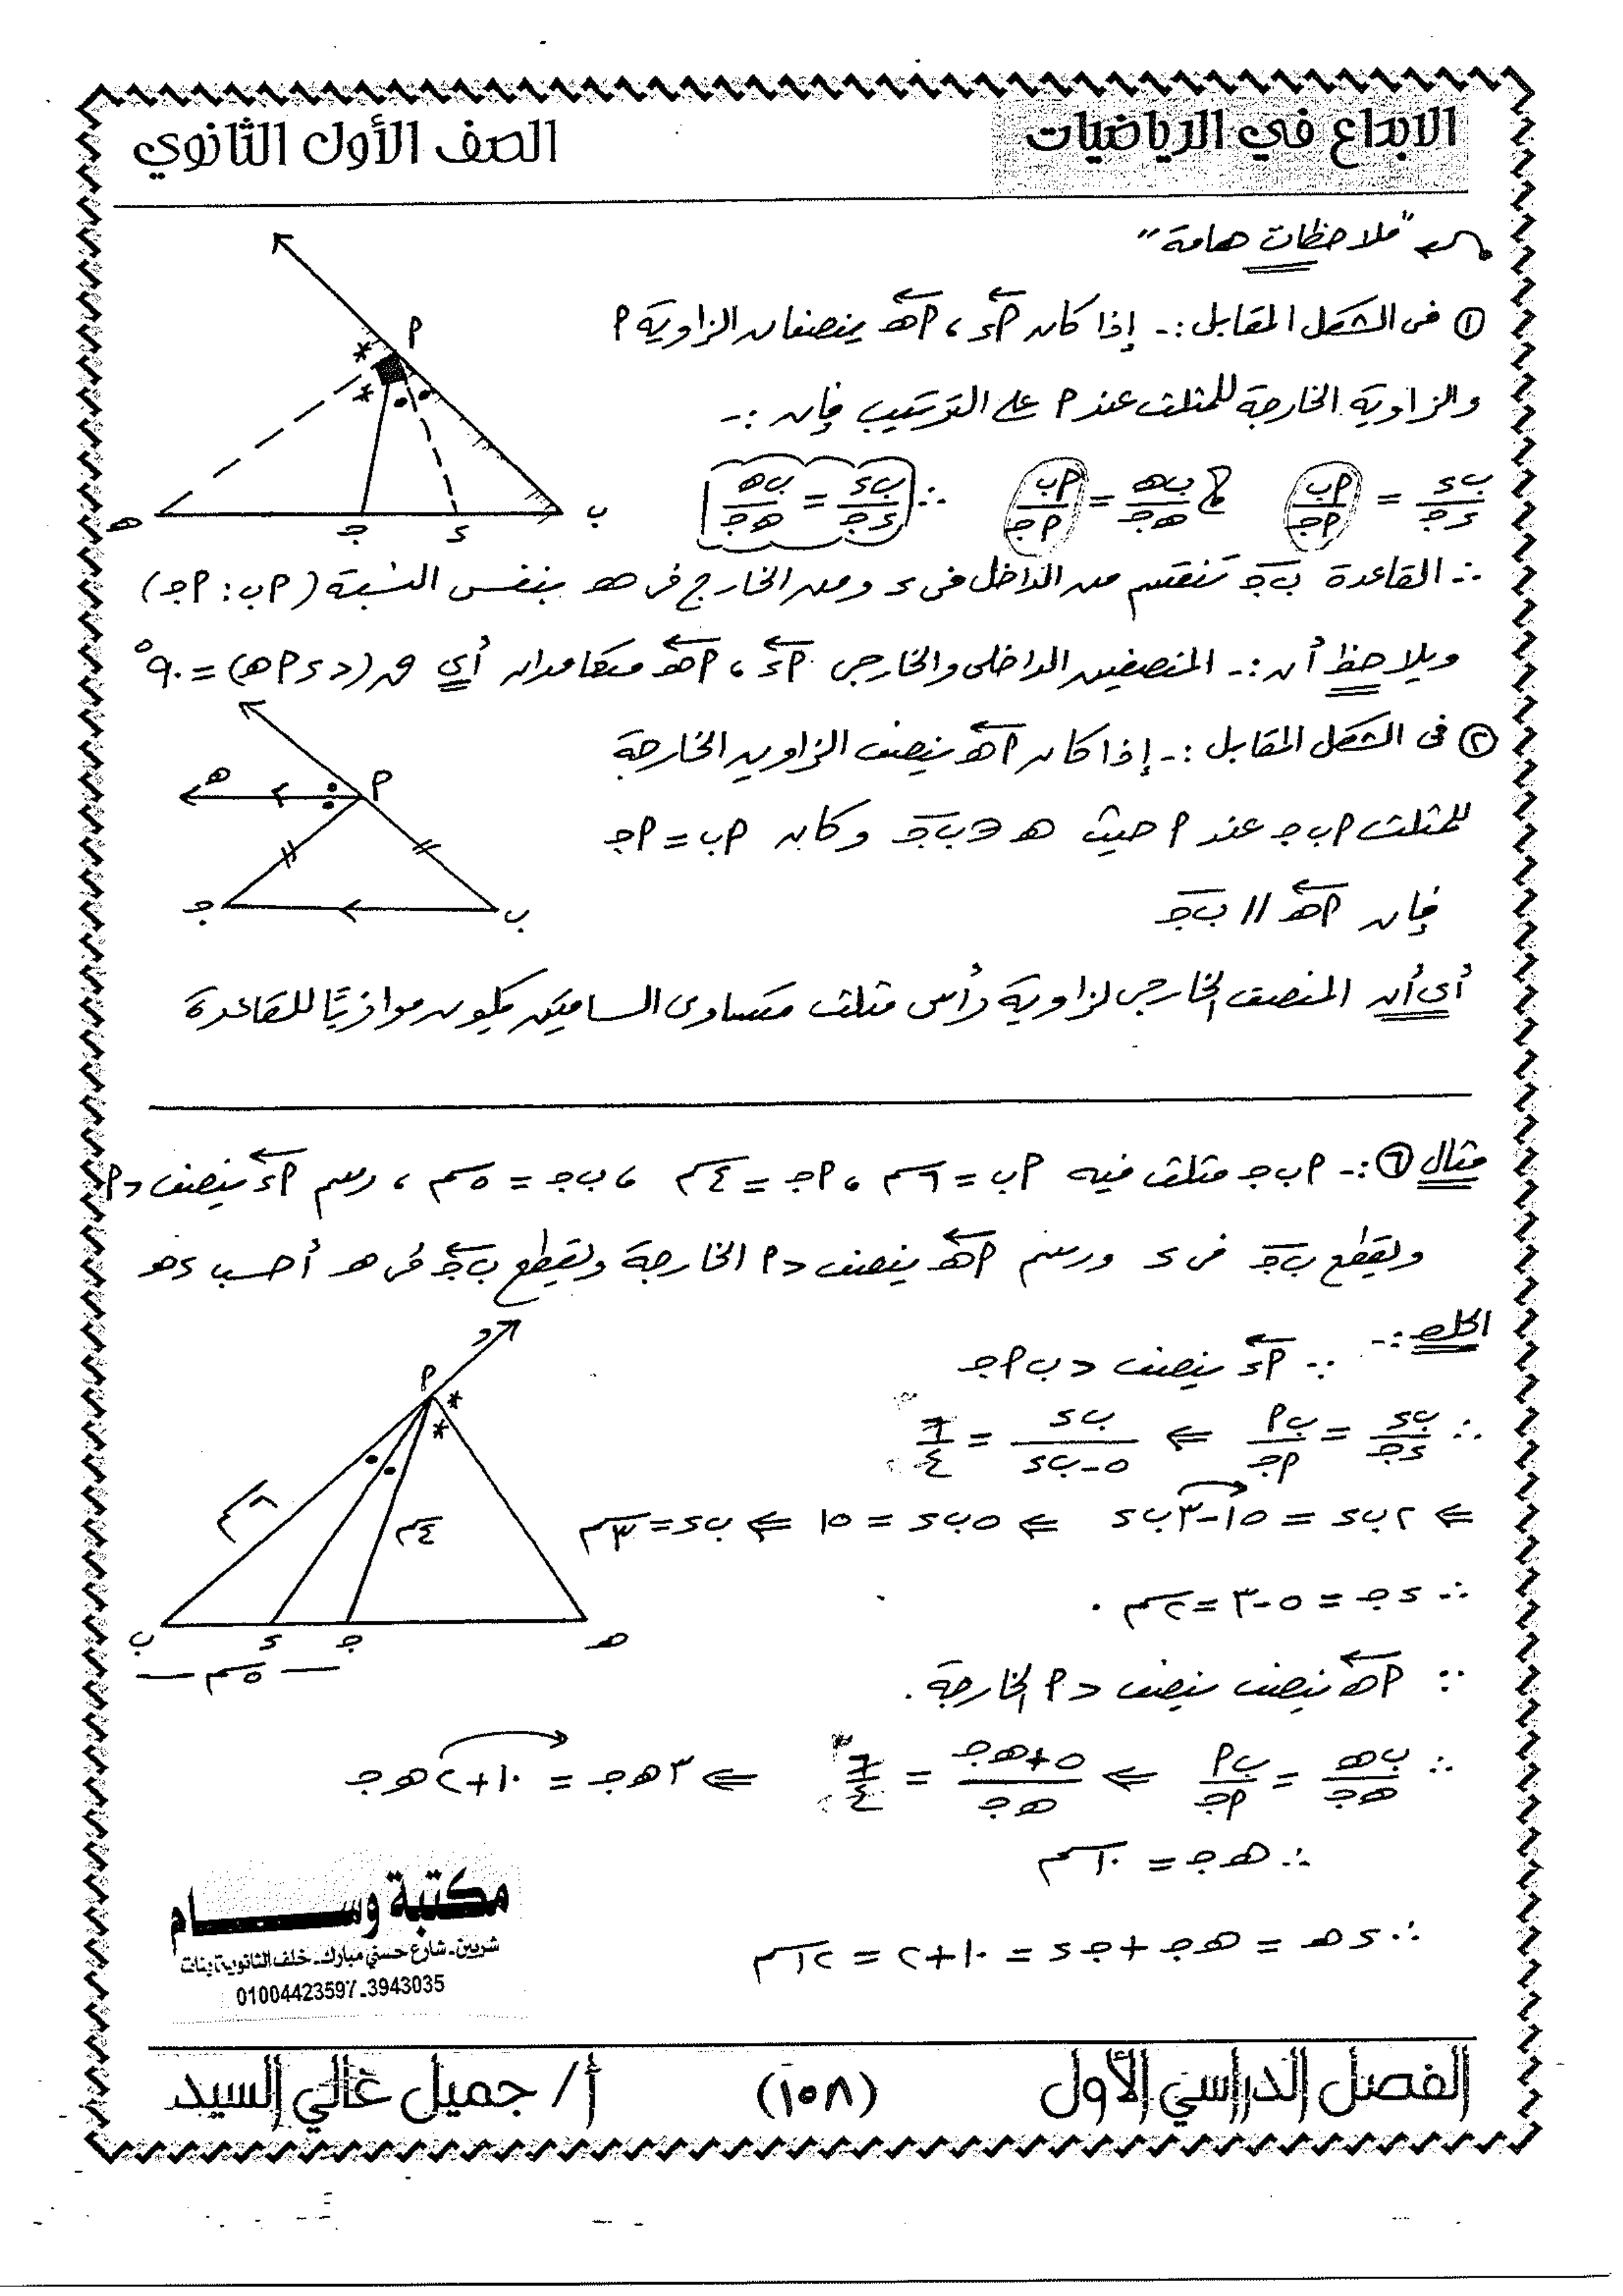 الابداع في الرياضيات
الصف الأول الثانوي
"ملاحظات هامة"
① فى الشكل المقابل :- إذا كان أء ، أهـ ينصفان الزاوية أ
والزاوية الخارجة للمثلث عند أ على الترتيب فإن :-
ب ء / ء جـ = أ ب / أ جـ ، ب هـ / هـ جـ = أ ب / أ جـ ∴ ب ء / ء جـ = ب هـ / هـ جـ
أ
هـ جـ ء ب
∴ القاعدة ب جـ تنقسم من الداخل فى ء ومن الخارج فى هـ بنفس النسبة (أ ب : أ جـ)
ويلاحظ أن :- المنصفين الداخلى والخارجى أء ، أهـ متعامدان أي ق (د ء أ هـ) = ٩٠°
② فى الشكل المقابل :- إذا كان أهـ ينصف الزاوية الخارجة
للمثلث أ ب جـ عند أ حيث هـ ∌ ب جـ وكان أ ب = أ جـ
فإن أهـ // ب جـ
هـ أ
جـ ب
أى أن المنصف الخارجى لزاوية رأس مثلث متساوى الساقين يكون موازيًا للقاعدة
مثال ⑥ :- أ ب جـ مثلث فيه أ ب = ٦سم ، أ جـ = ٤سم ، ب جـ = ٥سم ، رسم أء ينصف د أ
ويقطع ب جـ فى ء ورسم أهـ ينصف د أ الخارجة ويقطع ب جـ فى هـ أحسب ء هـ
الحل :-
∵ أء ينصف د ب أ جـ
∴ ب ء / ء جـ = ب أ / أ جـ ⇐ ب ء / ٥ - ب ء = ٦ / ٤ ٣
⇐ ٢ ب ء = ١٥ - ٣ ب ء ⇐ ٥ ب ء = ١٥ ⇐ ب ء = ٣سم
∴ ء جـ = ٥ - ٣ = ٢سم
أ
٦سم ٤سم
ب ء جـ هـ
٥سم
∵ أهـ ينصف ينصف د أ الخارجة .
∴ ب هـ / هـ جـ = ب أ / أ جـ ⇐ ٥ + هـ جـ / هـ جـ = ٦ / ٤ ٣ ⇐ ٣ هـ جـ = ١٠ + ٢ هـ جـ
∴ هـ جـ = ١٠سم
∴ ء هـ = هـ جـ + جـ ء = ١٠ + ٢ = ١٢سم
مكتبة وســـــام
شربين - شارع حسني مبارك - خلف الثانوية بنات
01004423597 - 3943035
الفصل الدراسي الأول
(١٥٨)
أ/ جميل غالي السيد